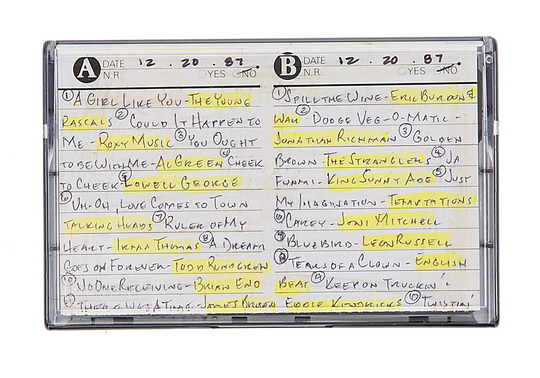 A DATE 12 . 20 . 87
N.R. YES NO
① A GIRL LIKE YOU - THE YOUNG
RASCALS ② COULD IT HAPPEN TO
ME - ROXY MUSIC ③ YOU OUGHT
TO BE WITH ME - AL GREEN ④ CHEEK
TO CHEEK - LOWELL GEORGE
⑥ UH-OH, LOVE COMES TO TOWN
TALKING HEADS ⑦ RULER OF MY
HEART - IRMA THOMAS ⑧ A DREAM
GOES ON FOREVER - TODD RUNDGREN
NO ONE RECEIVING - BRIAN ENO
THERE WAS A TIME - JAMES BROWN
B DATE 12 . 20 . 87
N.R. YES NO
① SPILL THE WINE - ERIC BURDON &
WAR ② DODGE VEG-O-MATIC -
JONATHAN RICHMAN ③ GOLDEN
BROWN - THE STRANGLERS ④ JA
FUNMI - KING SUNNY ADE ⑤ JUST
MY IMAGINATION - TEMPTATIONS
⑥ CAREY - JONI MITCHELL
BLUEBIRD - LEON RUSSELL
⑧ TEARS OF A CLOWN - ENGLISH
BEAT ⑨ KEEP ON TRUCKIN'
EDDIE KENDRICKS ⑩ TWISTIN'